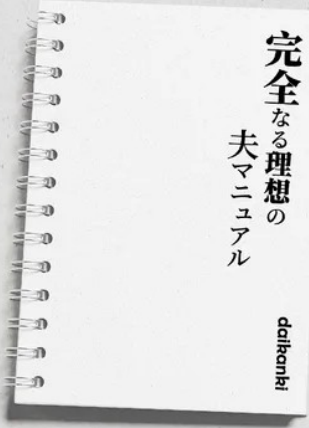 完全なる理想の
夫マニュアル
daikanki